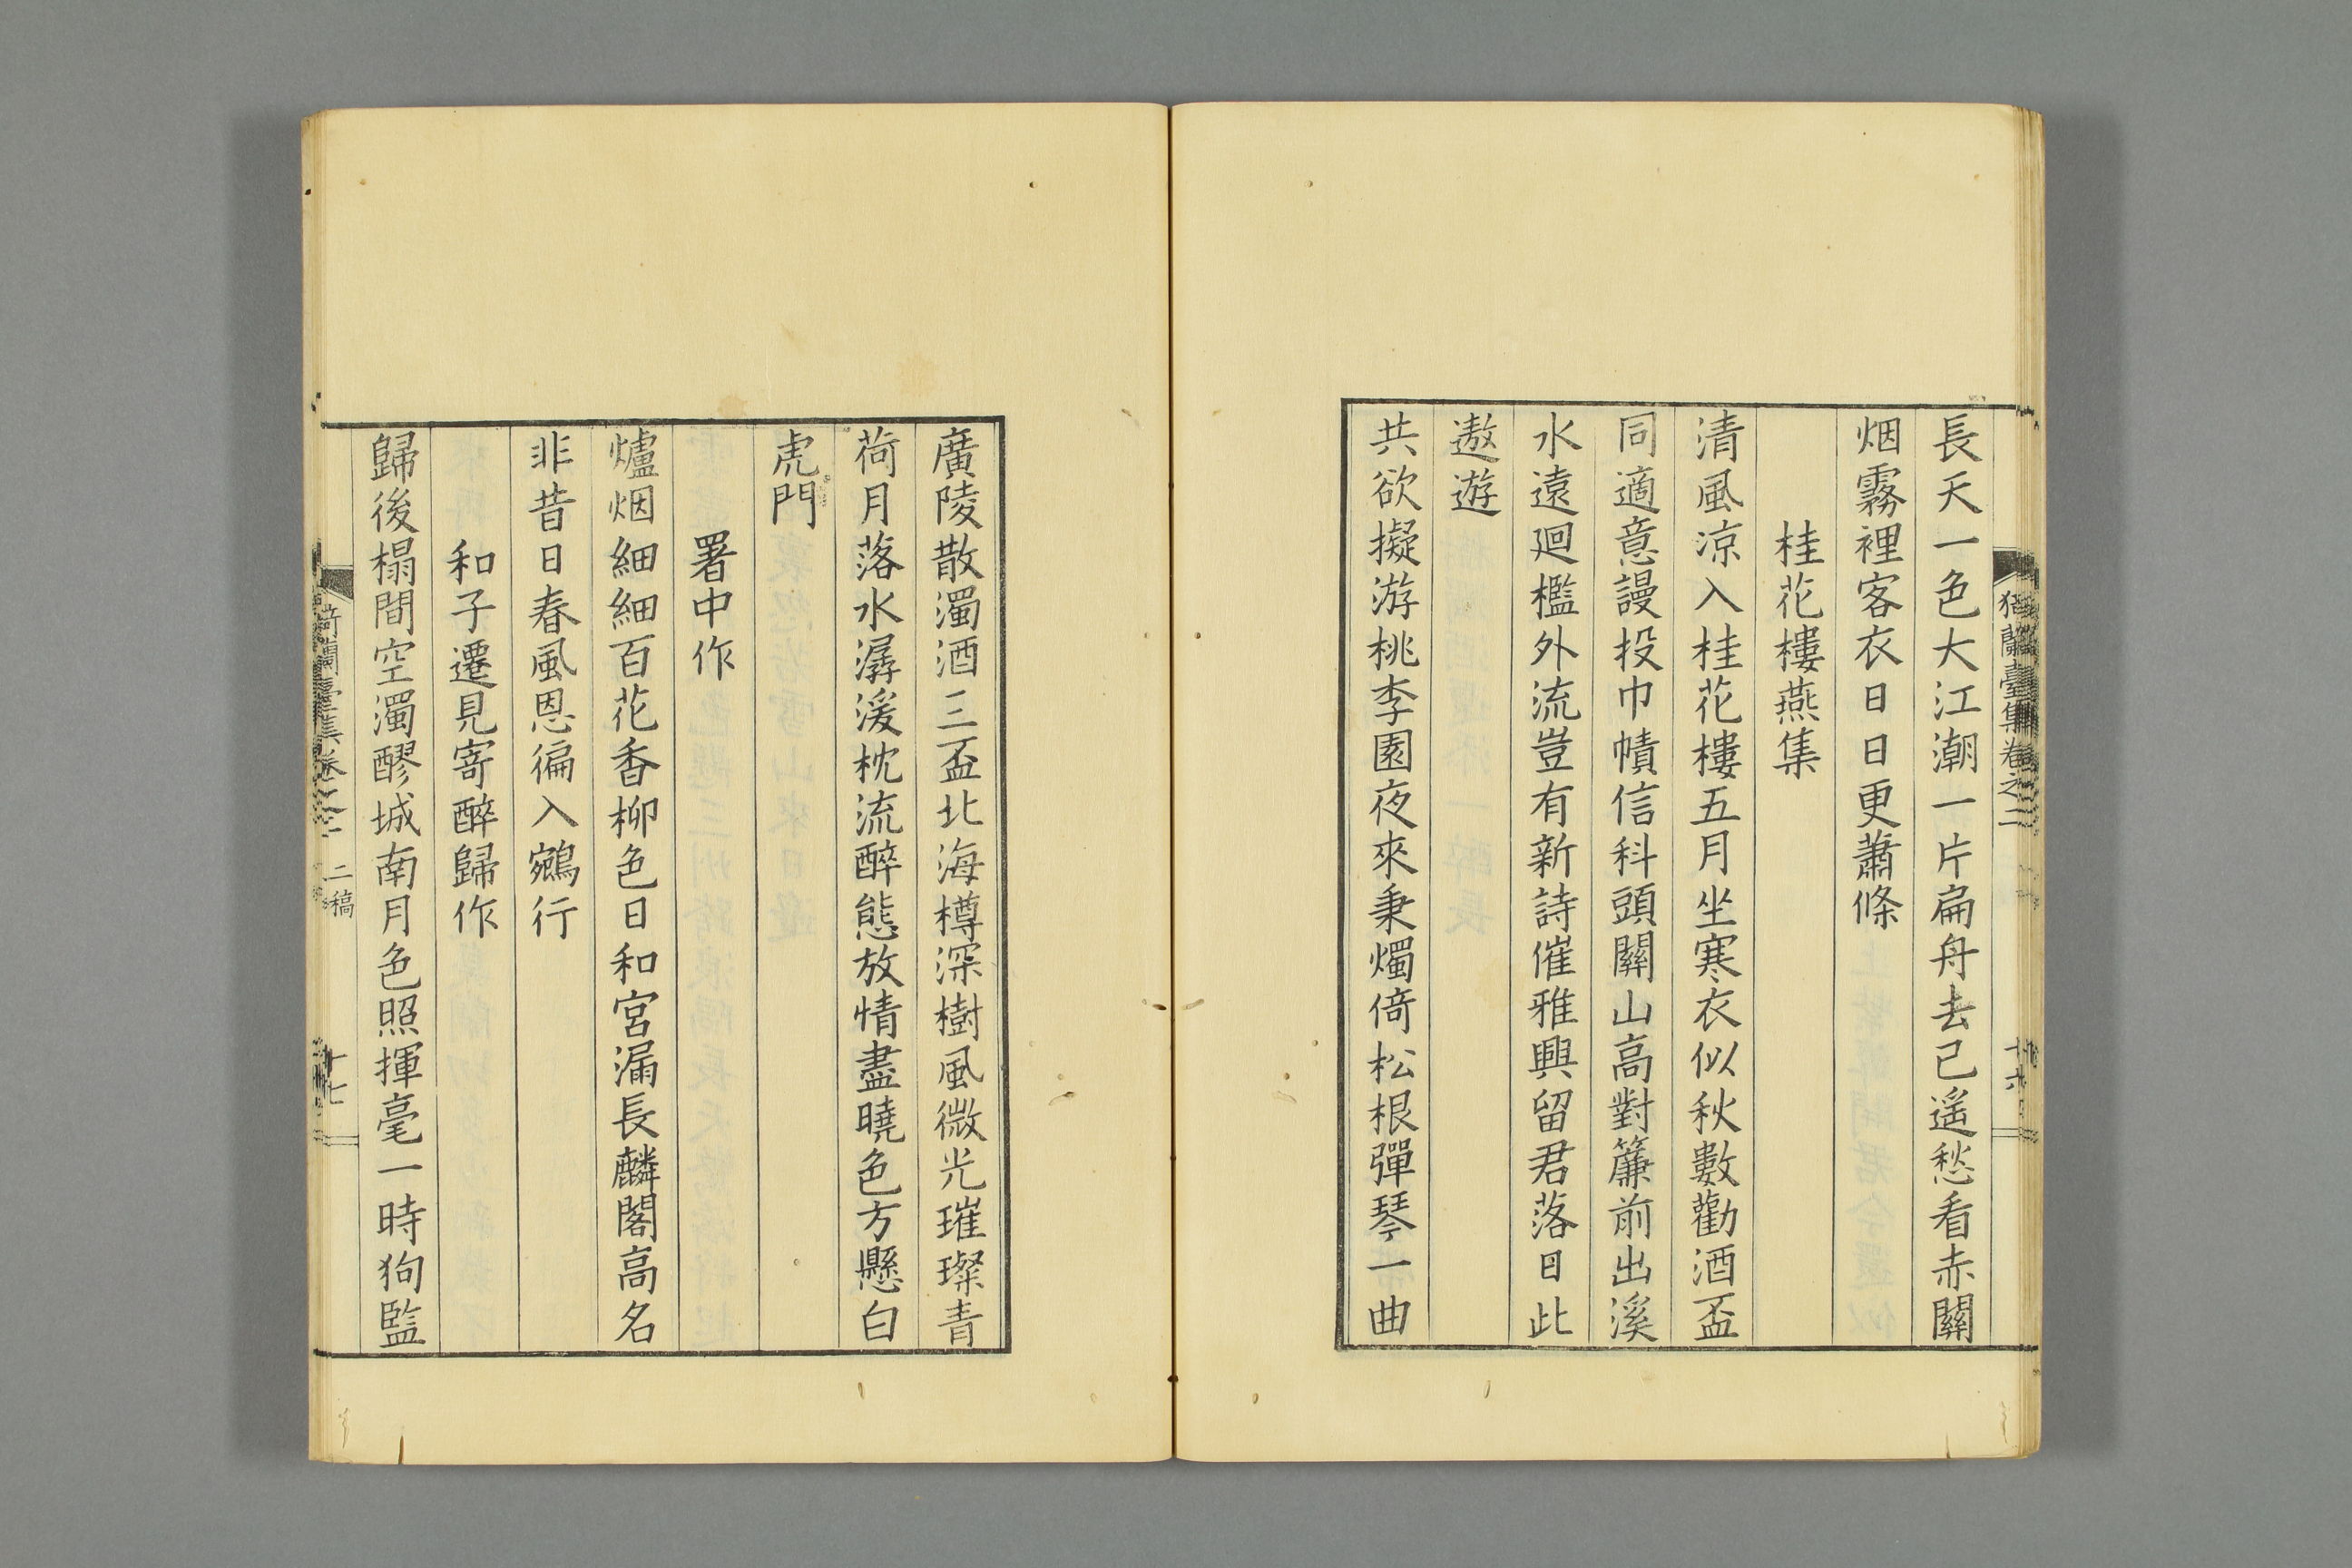 長天一色大江潮一片扁舟去已遙愁看赤關
烟霧裡客衣日日更蕭條
桂花樓燕集
清風凉入桂花樓五月坐寒衣似秋數勸酒盃
同適意謾投巾幘信科頭關山高對簾前出溪
水遠廻檻外流豈有新詩催雅興留君落日此
遨遊
共欲擬游桃李園夜來秉燭倚松根彈琴一曲
廣陵散濁酒三盃北海樽深樹風微光璀璨青
荷月落水潺湲枕流醉態放情盡曉色方懸白
虎門
署中作
爐烟細細百花香柳色日和宮漏長麟閣高名
非昔日春風恩徧入鵷行
和子遷見寄醉歸作
歸後榻間空濁醪城南月色照揮毫一時狗監
猗蘭臺集卷之二
十六
猗蘭臺集卷之二 二稿
十七